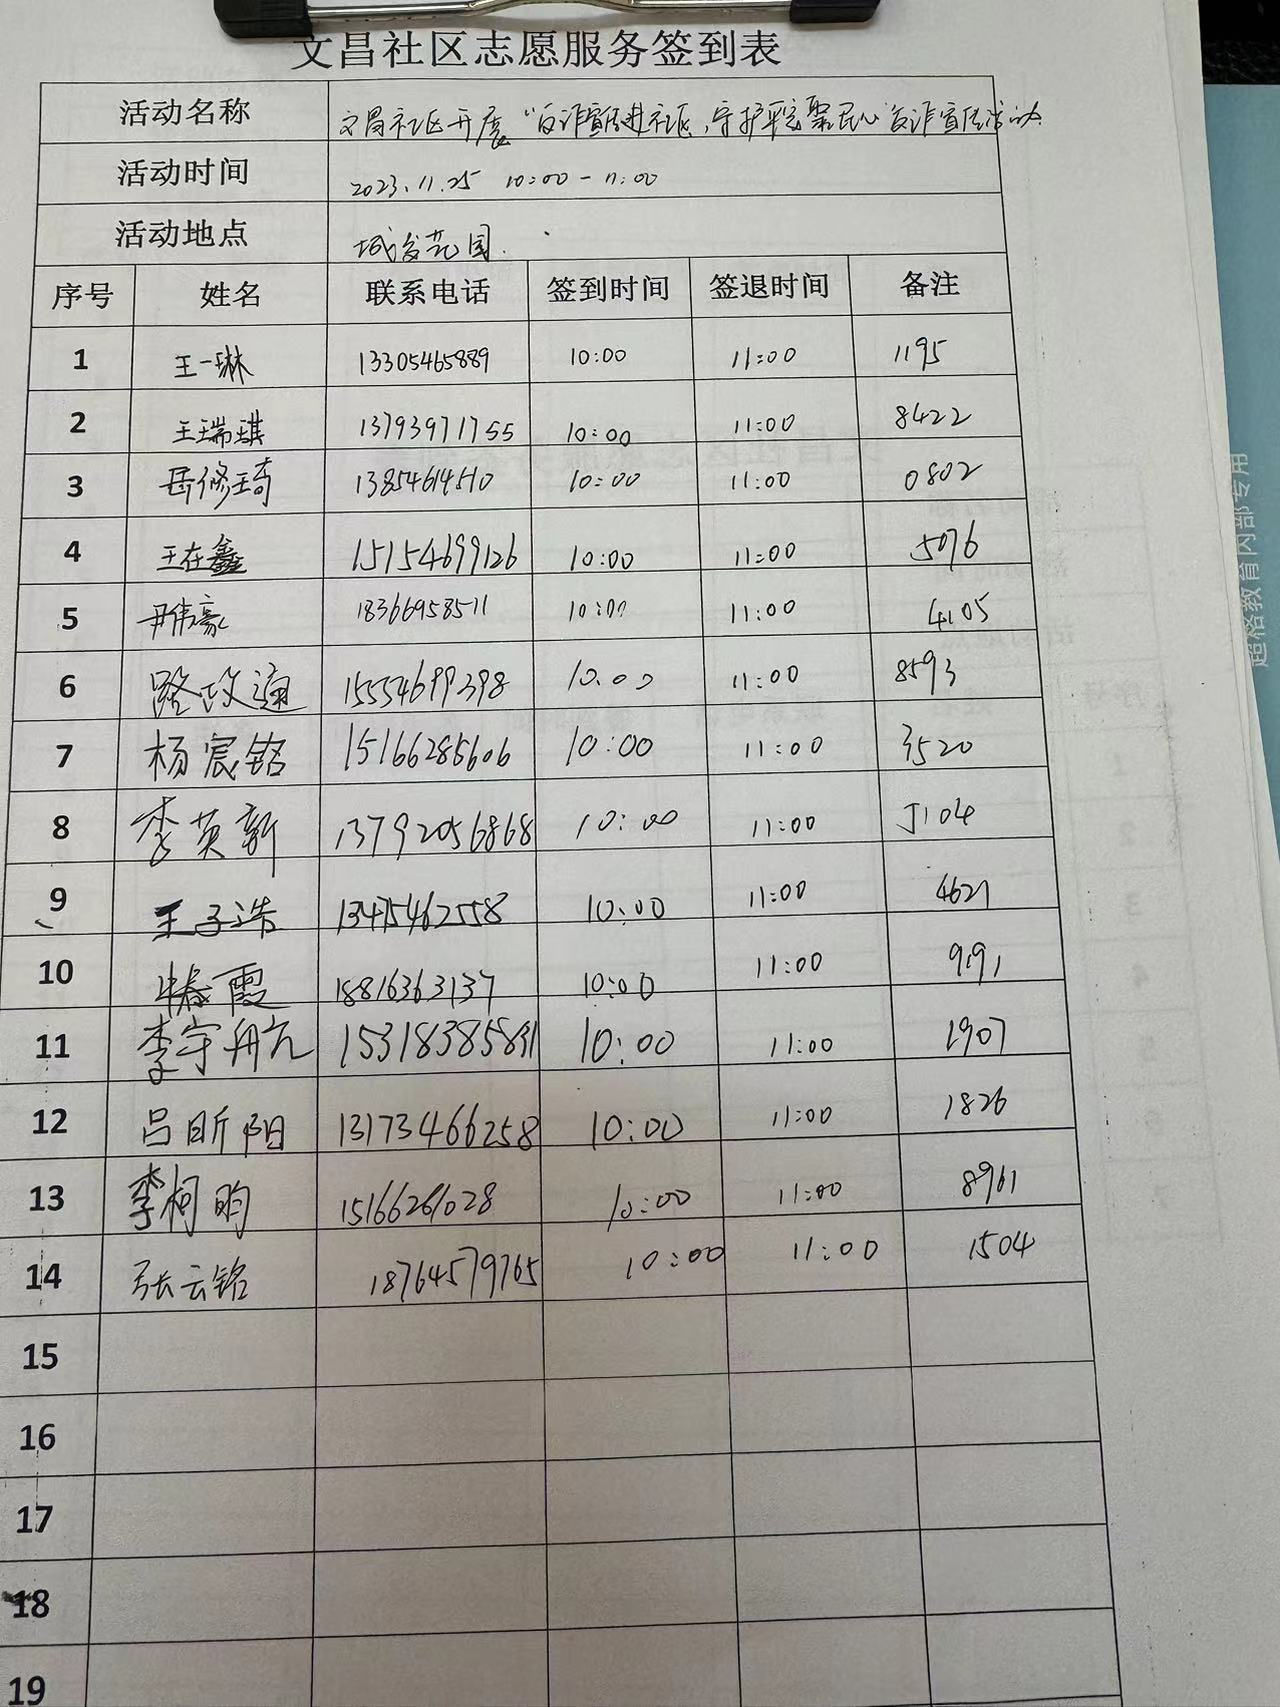 文昌社区志愿服务签到表
活动名称 文昌社区开展“反诈宣传进社区,守护平安聚民心”反诈宣传活动
活动时间 2023.11.25 10:00-11:00
活动地点 城发花园.
序号 姓名 联系电话 签到时间 签退时间 备注
1 王一琳 13305465889 10:00 11:00 1195
2 王瑞琪 13793971755 10:00 11:00 8422
3 岳修琦 13854614510 10:00 11:00 0802
4 王在鑫 15154699126 10:00 11:00 5076
5 尹伟豪 18366958511 10:00 11:00 4105
6 路政通 15554699398 10:00 11:00 8593
7 杨宸铭 15166285606 10:00 11:00 3520
8 李英新 13792056868 10:00 11:00 5104
9 王子浩 13475462558 10:00 11:00 4621
10 牛春霞 18816363137 10:00 11:00 9191
11 李宇航 15318385831 10:00 11:00 1907
12 吕昕阳 13173466258 10:00 11:00 1826
13 李柯昀 10:00 11:00 8961
14 张云铭 18764579765 10:00 11:00 1504
15
16
17
18
19
超格教育内部专用